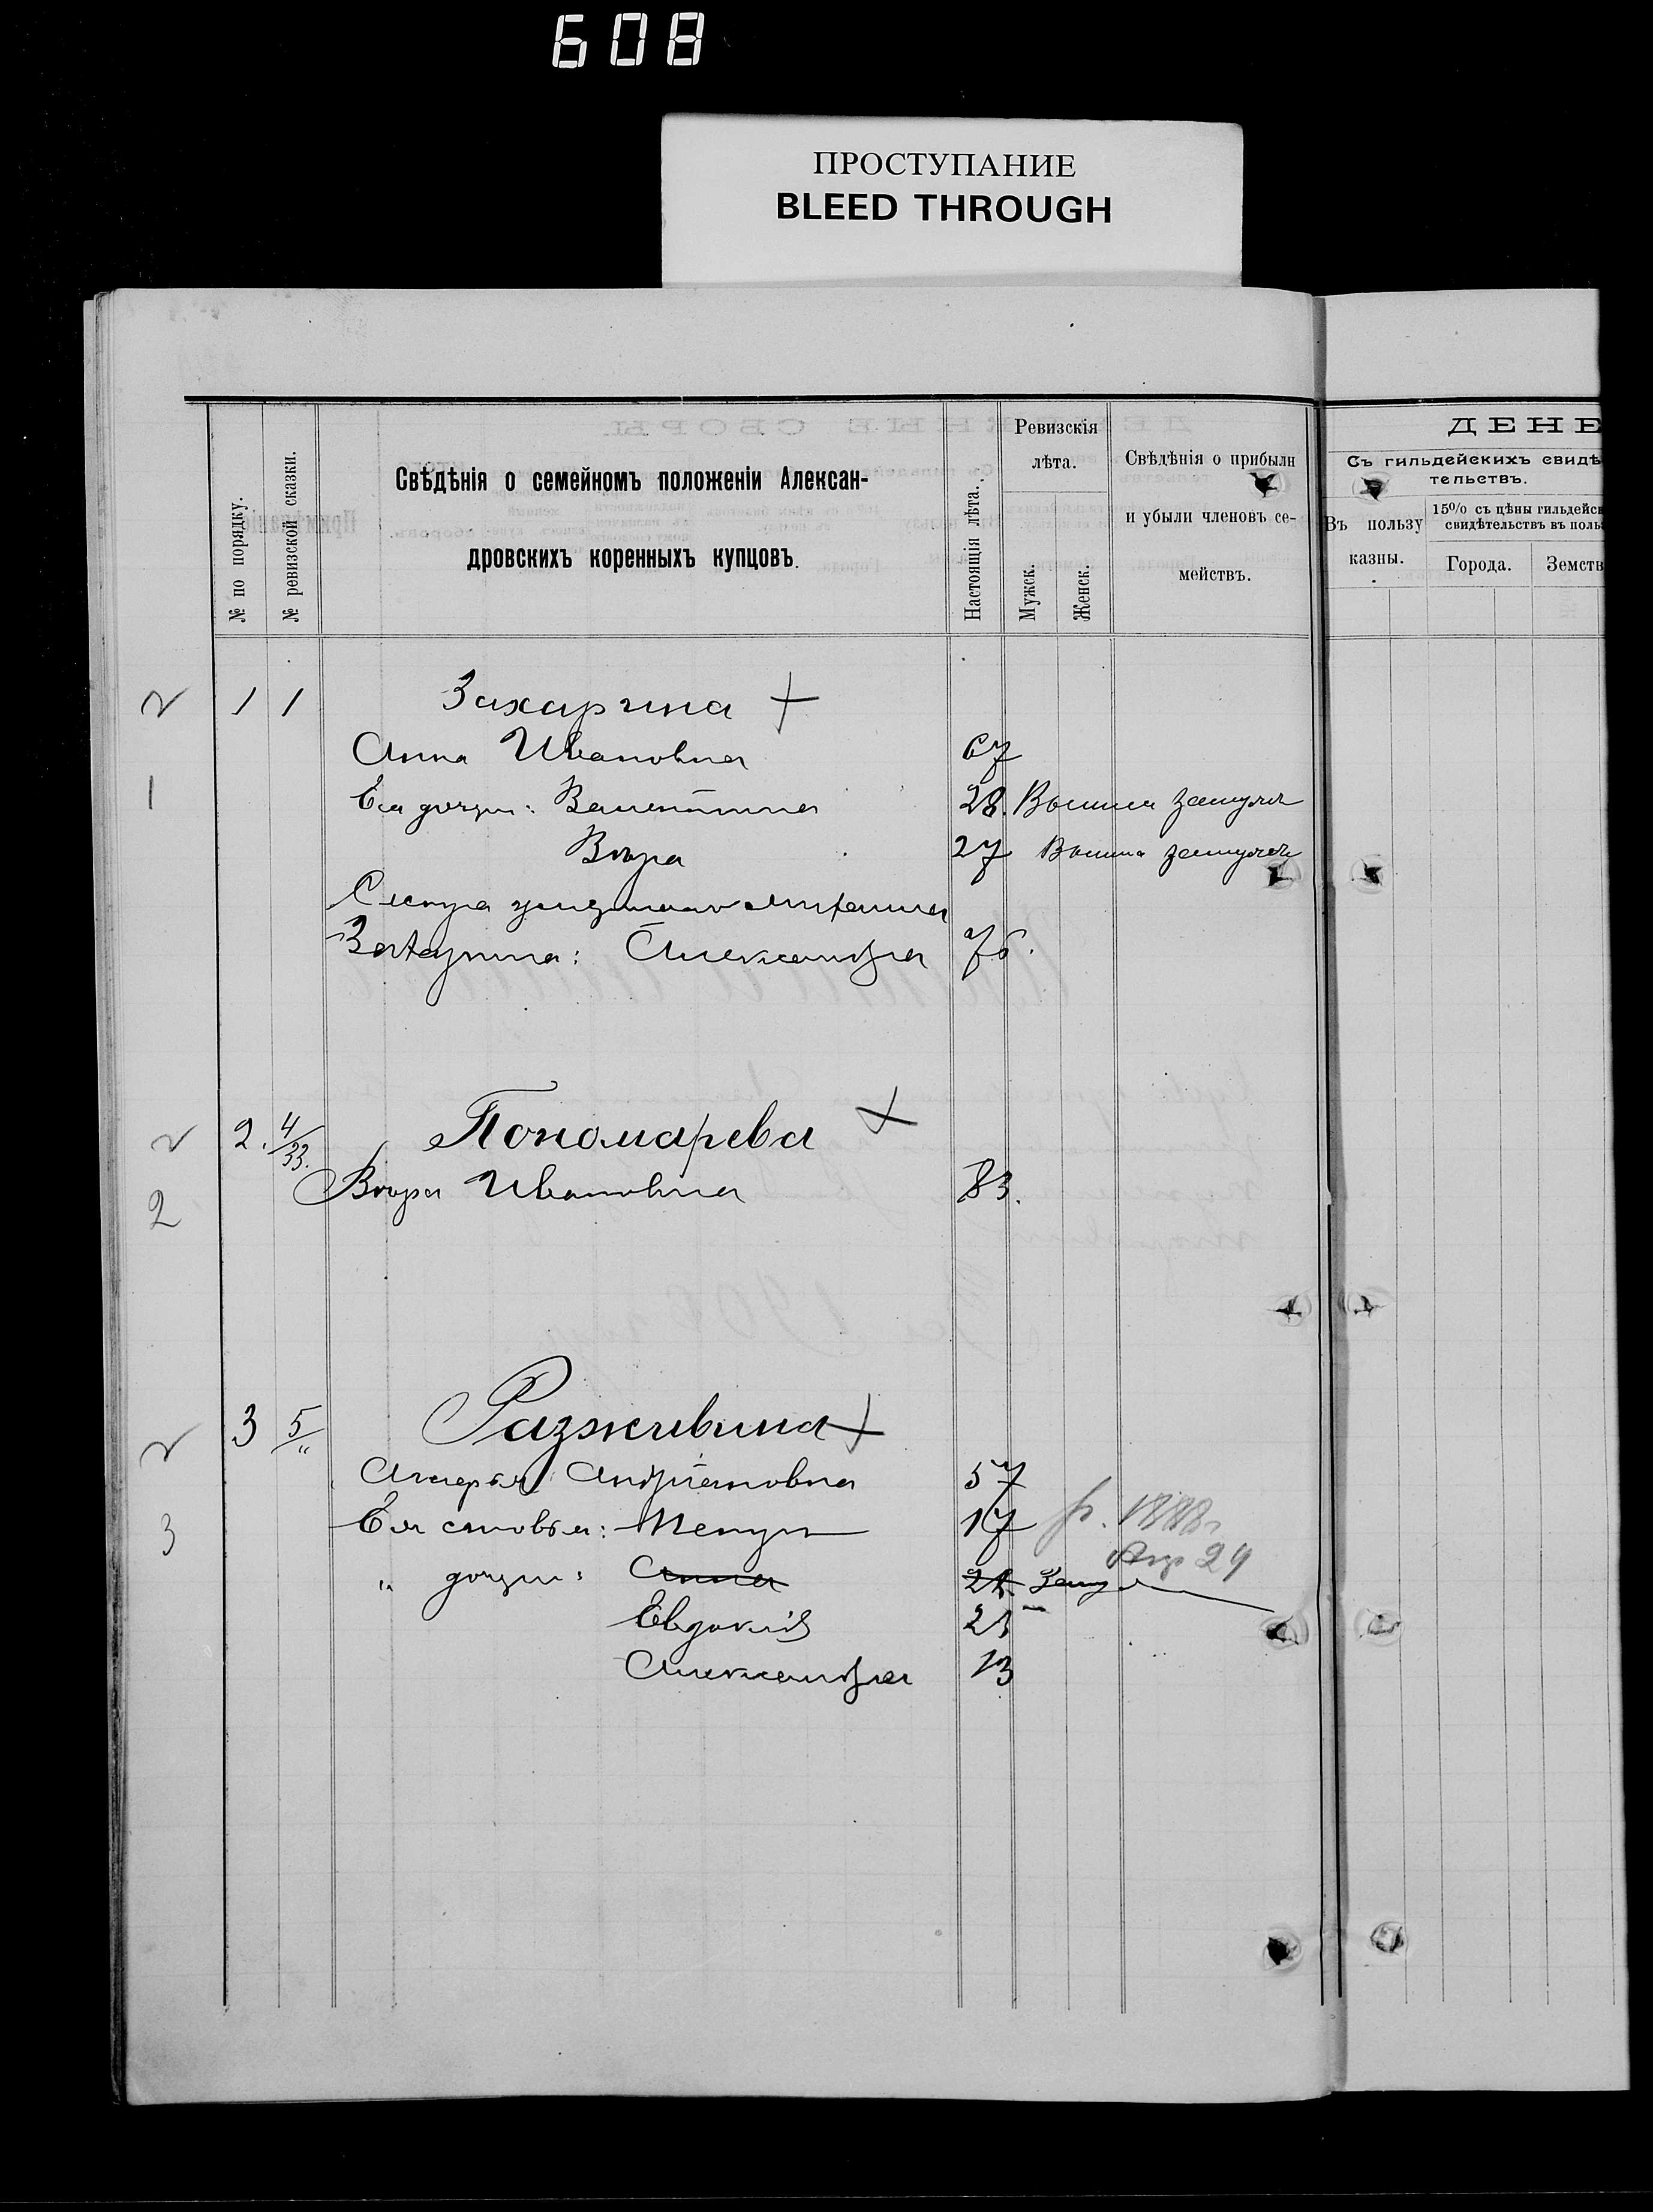 608
ПРОСТУПАНИЕ
BLEED THROUGH
№ по порядку.
№ ревизской сказки.
Свѣдѣнія о семейномъ положеніи Алексан-
дровскихъ коренныхъ купцовъ.
Настоящія лѣта.
Ревизскія
лѣта.
Мужск.
Женск.
Свѣдѣнія о прибыли
и убыли членовъ се-
мействъ.
ДЕНЕ
Съ гильдейскихъ свидѣ
тельствъ.
Въ пользу
казны.
15% съ цѣны гильдейск
свидѣтельствъ въ поль
Города.
Земств
1 1 Захарина
Анна Ивановна 67
1
Ея дочери: Валентина 28. Вышла замужъ
Вѣра 27 Вышла замужъ
Сестра Михаила
Захарина: Александра 76.
2. 4/33. Пономарева
Вѣра Ивановна 83.
2
3 5/„ Разживина
Марья Андріановна 57
3
Ея сыновья: Петръ 17 р. 1888
Апр 29
„ дочери: Анна 24. Замуж
Евдокія 21
Александра 13